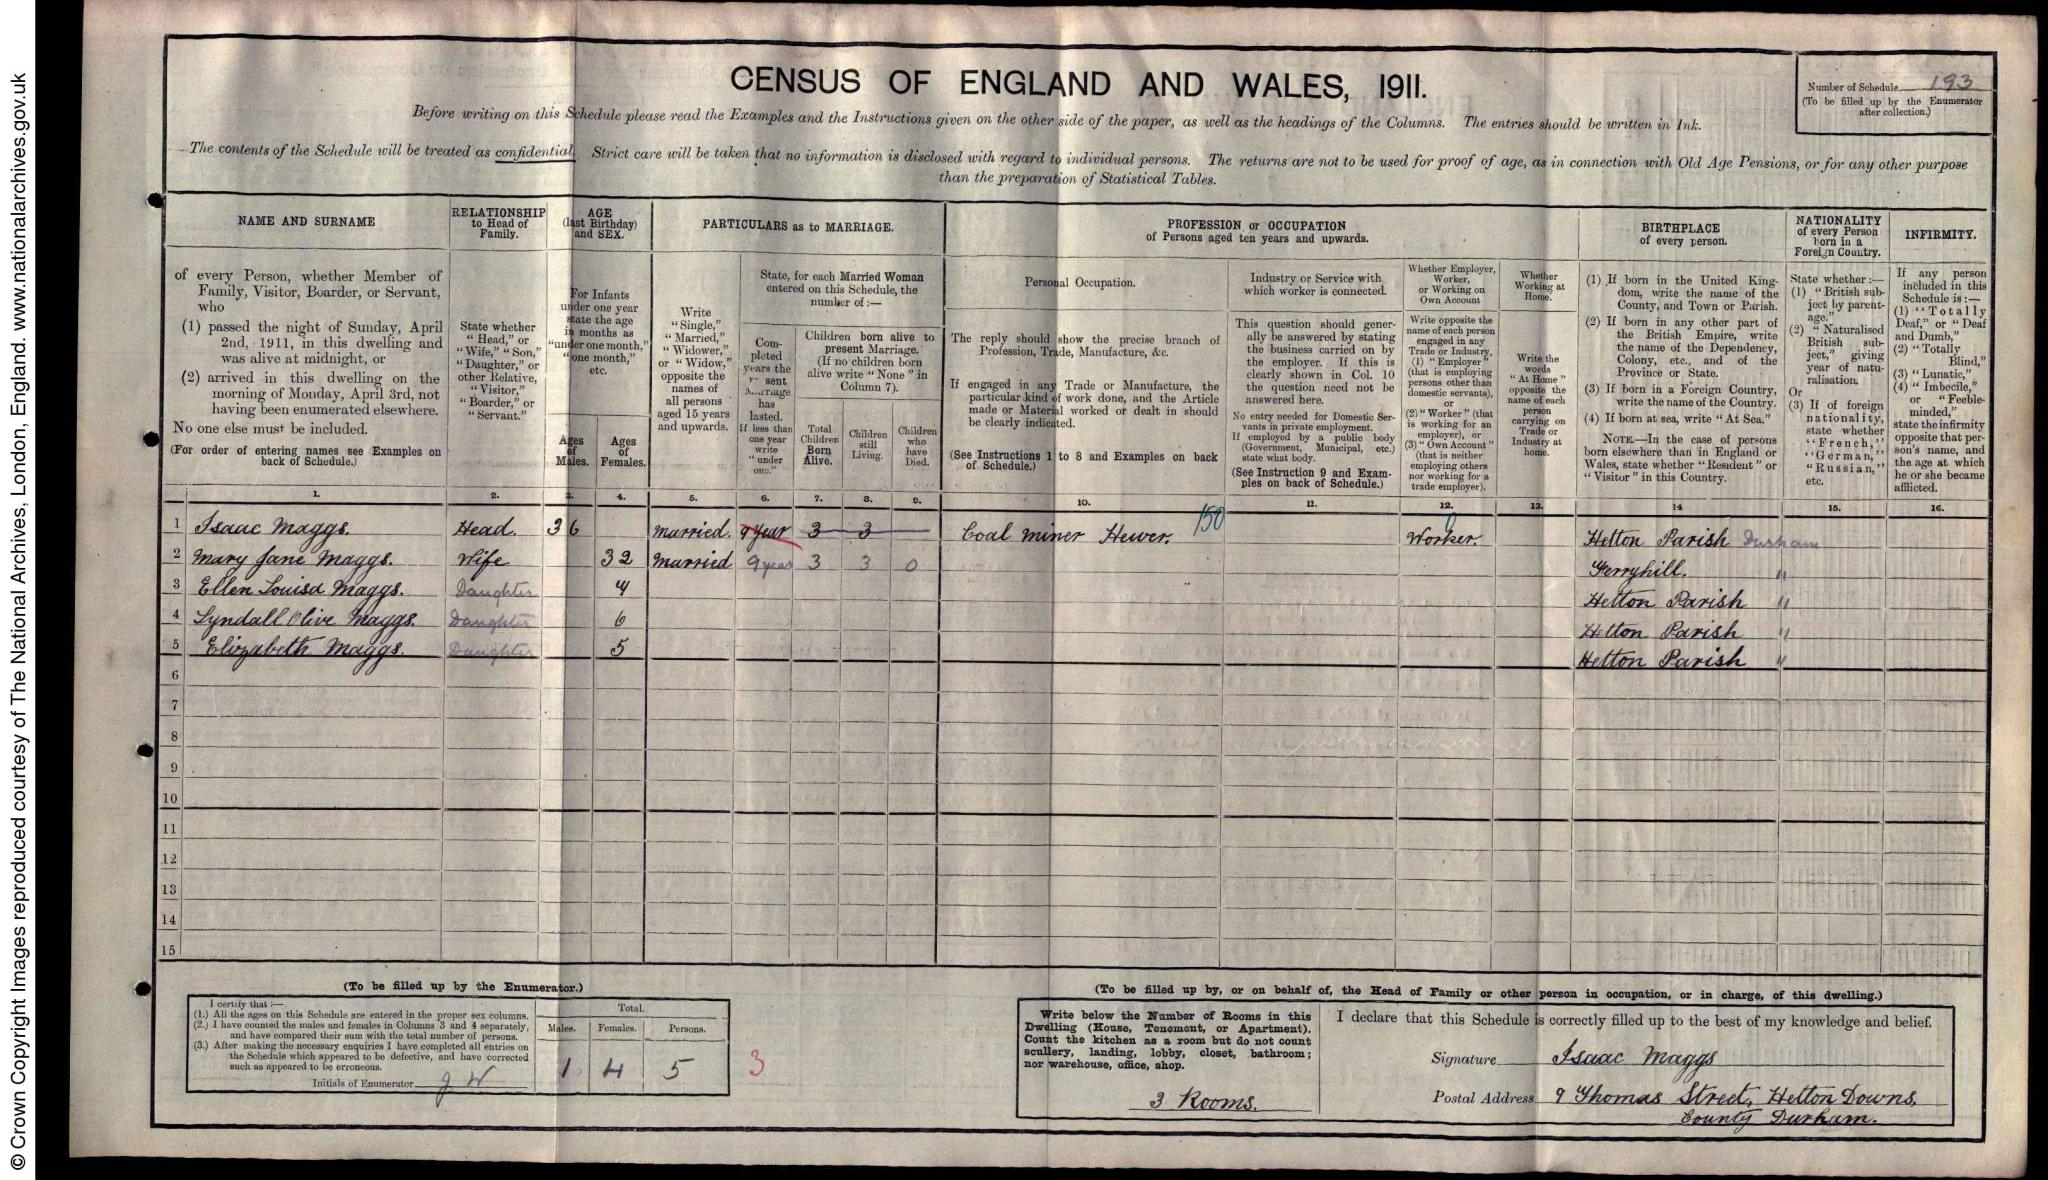 © Crown Copyright Images reproduced courtesy of The National Archives, London, England. www.nationalarchives.gov.uk
CENSUS OF ENGLAND AND WALES, 1911.
Number of Schedule 193
(To be filled up by the Enumerator
after collection.)
Before writing on this Schedule please read the Examples and the Instructions given on the other side of the paper, as well as the headings of the Columns. The entries should be written in Ink.
The contents of the Schedule will be treated as confidential. Strict care will be taken that no information is disclosed with regard to individual persons. The returns are not to be used for proof of age, as in connection with Old Age Pensions, or for any other purpose
than the preparation of Statistical Tables.
NAME AND SURNAME
of every Person, whether Member of
Family, Visitor, Boarder, or Servant,
who
(1) passed the night of Sunday, April
2nd, 1911, in this dwelling and
was alive at midnight, or
(2) arrived in this dwelling on the
morning of Monday, April 3rd, not
having been enumerated elsewhere.
No one else must be included.
(For order of entering names see Examples on
back of Schedule.)
RELATIONSHIP
to Head of
Family.
State whether
"Head," or
"Wife," "Son,"
"Daughter," or
other Relative,
"Visitor,"
"Boarder," or
"Servant."
AGE
(last Birthday)
and SEX.
For Infants
under one year
state the age
in months as
"under one month,"
"one month,"
etc.
Ages
of
Males.
Ages
of
Females.
PARTICULARS as to MARRIAGE.
Write
"Single,"
"Married,"
"Widower,"
or "Widow,"
opposite the
names of
all persons
aged 15 years
and upwards.
State, for each Married Woman
entered on this Schedule, the
number of :—
Com-
pleted
years the
sent
Marriage
has
lasted.
If less than
one year
write
"under
one."
Children born alive to
present Marriage.
(If no children born
alive write "None" in
Column 7).
Total
Children
Born
Alive.
Children
still
Living.
Children
who
have
Died.
PROFESSION or OCCUPATION
of Persons aged ten years and upwards.
Personal Occupation.
The reply should show the precise branch of
Profession, Trade, Manufacture, &c.
If engaged in any Trade or Manufacture, the
particular kind of work done, and the Article
made or Material worked or dealt in should
be clearly indicated.
(See Instructions 1 to 8 and Examples on back
of Schedule.)
Industry or Service with
which worker is connected.
This question should gener-
ally be answered by stating
the business carried on by
the employer. If this is
clearly shown in Col. 10
the question need not be
answered here.
No entry needed for Domestic Ser-
vants in private employment.
If employed by a public body
(Government, Municipal, etc.)
state what body.
(See Instruction 9 and Exam-
ples on back of Schedule.)
Whether Employer,
Worker,
or Working on
Own Account
Write opposite the
name of each person
engaged in any
Trade or Industry,
(1) "Employer"
(that is employing
persons other than
domestic servants),
or
(2) "Worker" (that
is working for an
employer), or
(3) "Own Account"
(that is neither
employing others
nor working for a
trade employer).
Whether
Working at
Home.
Write the
words
"At Home"
opposite the
name of each
person
carrying on
Trade or
Industry at
home.
BIRTHPLACE
of every person.
(1) If born in the United King-
dom, write the name of the
County, and Town or Parish.
(2) If born in any other part of
the British Empire, write
the name of the Dependency,
Colony, etc., and of the
Province or State.
(3) If born in a Foreign Country,
write the name of the Country.
(4) If born at sea, write "At Sea."
NOTE.—In the case of persons
born elsewhere than in England or
Wales, state whether "Resident" or
"Visitor" in this Country.
NATIONALITY
of every Person
born in a
Foreign Country.
State whether :—
(1) "British sub-
ject by parent-
age."
(2) "Naturalised
British sub-
ject," giving
year of natu-
ralisation.
Or
(3) If of foreign
nationality,
state whether
"French,"
"German,"
"Russian,"
etc.
INFIRMITY.
If any person
included in this
Schedule is :—
(1) "Totally
Deaf," or "Deaf
and Dumb,"
(2) "Totally
Blind,"
(3) "Lunatic,"
(4) "Imbecile,"
or "Feeble-
minded,"
state the infirmity
opposite that per-
son's name, and
the age at which
he or she became
afflicted.
1. 2. 3. 4. 5. 6. 7. 8. 9. 10. 11. 12. 13. 14 15. 16.
1 Isaac Maggs. Head. 36 Married. 9 Year 3 3 — Coal Miner Hewer. 150 Worker. 0 Hetton Parish Durham
2 Mary Jane Maggs. Wife 32 Married 9 year 3 3 0 Ferryhill. "
3 Ellen Louisa Maggs. Daughter Hetton Parish "
4 Lyndall Olive Maggs. Daughter 6 Hetton Parish "
5 Elizabeth Maggs. Daughter 5 Hetton Parish "
6
7
8
9
10
11
12
13
14
15
(To be filled up by the Enumerator.)
I certify that :—
(1.) All the ages on this Schedule are entered in the proper sex columns.
(2.) I have counted the males and females in Columns 3 and 4 separately,
and have compared their sum with the total number of persons.
(3.) After making the necessary enquiries I have completed all entries on
the Schedule which appeared to be defective, and have corrected
such as appeared to be erroneous.
Initials of Enumerator J W
Total.
Males. Females. Persons.
1 4 5
3
(To be filled up by, or on behalf of, the Head of Family or other person in occupation, or in charge, of this dwelling.)
Write below the Number of Rooms in this
Dwelling (House, Tenement, or Apartment).
Count the kitchen as a room but do not count
scullery, landing, lobby, closet, bathroom;
nor warehouse, office, shop.
3 Rooms.
I declare that this Schedule is correctly filled up to the best of my knowledge and belief.
Signature Isaac Maggs
Postal Address 9 Thomas Street, Hetton Downs,
County Durham.